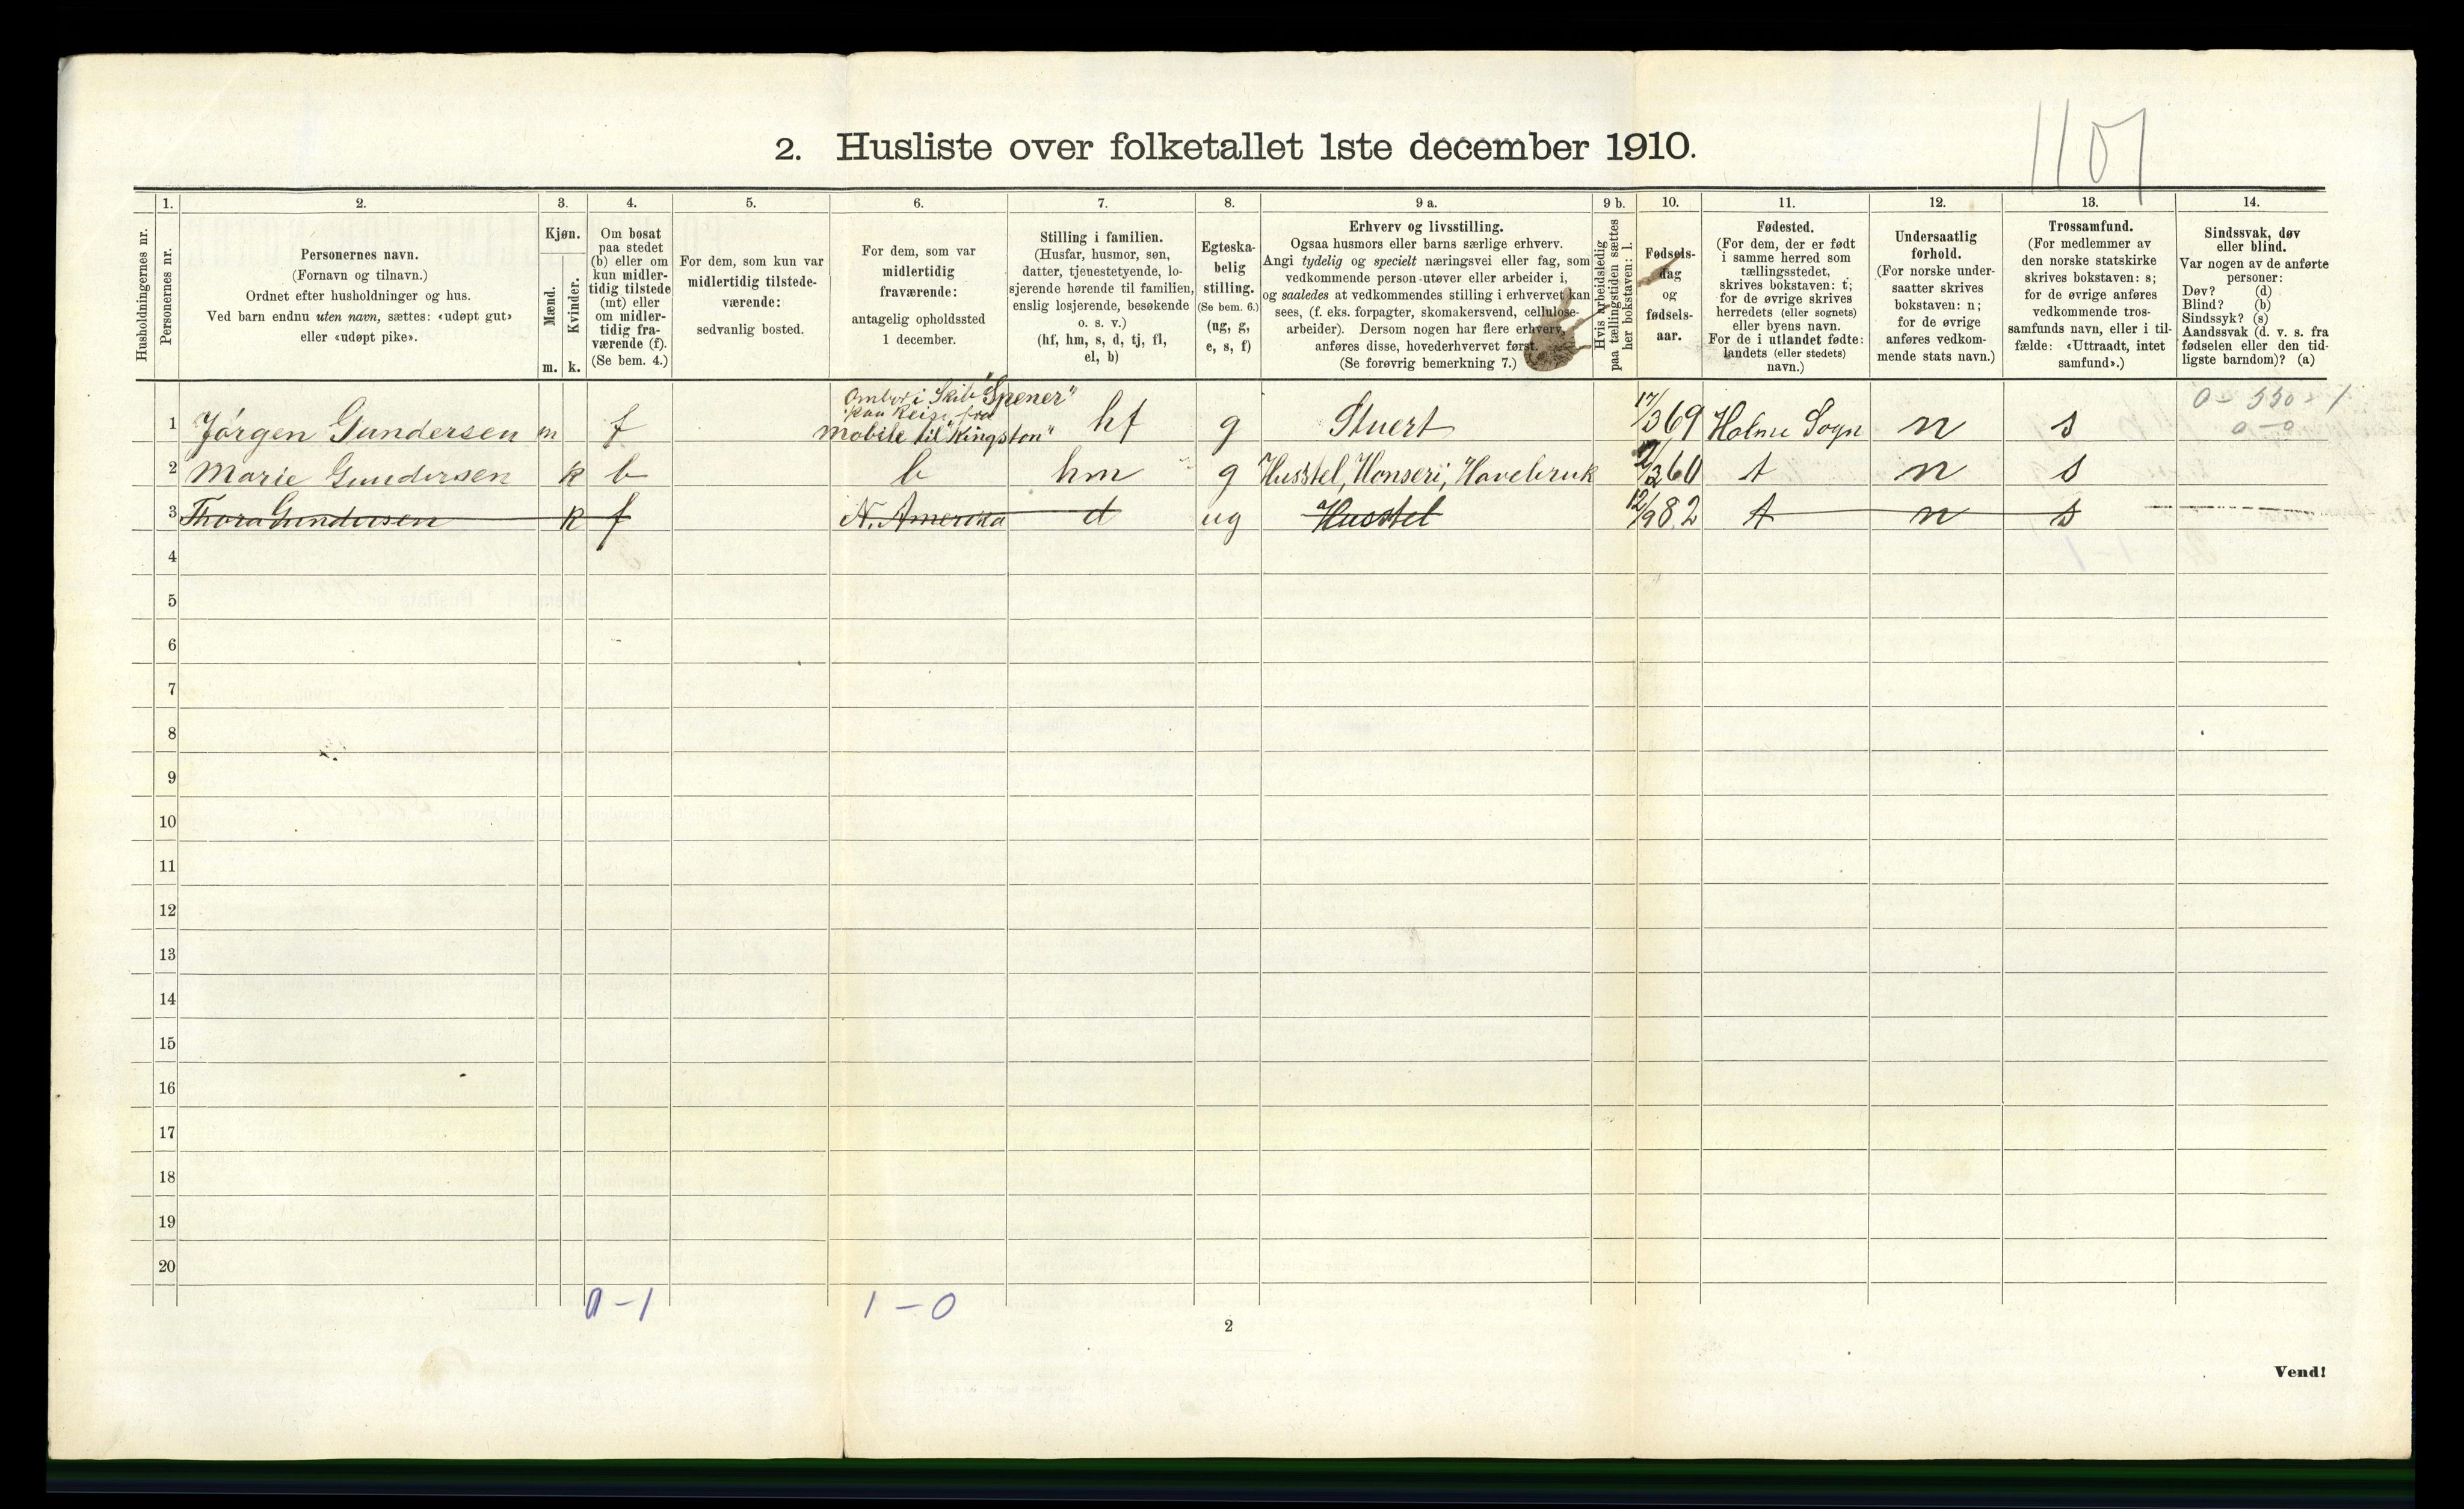 1107
2. Husliste over folketallet 1ste december 1910.
1. 2. 3. 4. 5. 6. 7. 8. 9 a. 9 b. 10. 11. 12. 13. 14.
Husholdningernes nr.
Personernes nr.
Personernes navn.
(Fornavn og tilnavn.)
Ordnet efter husholdninger og hus.
Ved barn endnu uten navn, sættes: «udøpt gut»
eller «udøpt pike».
Kjøn.
Mænd.
Kvinder.
m. k.
Om bosat
paa stedet
(b) eller om
kun midler-
tidig tilstede
(mt) eller
om midler-
tidig fra-
værende (f).
(Se bem. 4.)
For dem, som kun var
midlertidig tilstede-
værende:
sedvanlig bosted.
For dem, som var
midlertidig
fraværende:
antagelig opholdssted
1 december.
Stilling i familien.
(Husfar, husmor, søn,
datter, tjenestetyende, lo-
sjerende hørende til familien,
enslig losjerende, besøkende
o. s. v.)
(hf, hm, s, d, tj, fl,
el, b)
Egteska-
belig
stilling.
(Se bem. 6.)
(ug, g,
e, s, f)
Erhverv og livsstilling.
Ogsaa husmors eller barns særlige erhverv.
Angi tydelig og specielt næringsvei eller fag, som
vedkommende person utøver eller arbeider i,
og saaledes at vedkommendes stilling i erhvervet kan
sees, (f. eks. forpagter, skomakersvend, cellulose-
arbeider). Dersom nogen har flere erhverv,
anføres disse, hovederhvervet først.
(Se forøvrig bemerkning 7.)
Hvis arbeidsledig
paa tællingstiden sættes
her bokstaven: l.
Fødsels-
dag
og
fødsels-
aar.
Fødested.
(For dem, der er født
i samme herred som
tællingsstedet,
skrives bokstaven: t;
for de øvrige skrives
herredets (eller sognets)
eller byens navn.
For de i utlandet fødte:
landets (eller stedets)
navn.)
Undersaatlig
forhold.
(For norske under-
saatter skrives
bokstaven: n;
for de øvrige
anføres vedkom-
mende stats navn.)
Trossamfund.
(For medlemmer av
den norske statskirke
skrives bokstaven: s;
for de øvrige anføres
vedkommende tros-
samfunds navn, eller i til-
fælde: «Uttraadt, intet
samfund».)
Sindssvak, døv
eller blind.
Var nogen av de anførte
personer:
Døv? (d)
Blind? (b)
Sindssyk? (s)
Aandssvak (d. v. s. fra
fødselen eller den tid-
ligste barndom)? (a)
0 - 530 - 1
0 - 0
Ombor i Skib "Spener"
paa Reise fra
1 Jørgen Gundersen m f Mobile til "Kingston" hf g Stuert 17/3 69 Holme Sogn n s
2 Marie Gundersen k b b hm g Husstel, Hønseri, Havebruk 60 t n s
3 Thora Gundersen k f N. Amerika d ug Husstel 12/9 82 t n s
4
5
6
7
8
9
10
11
12
13
14
15
16
17
18
19
20
0-1 1-0
2
Vend!